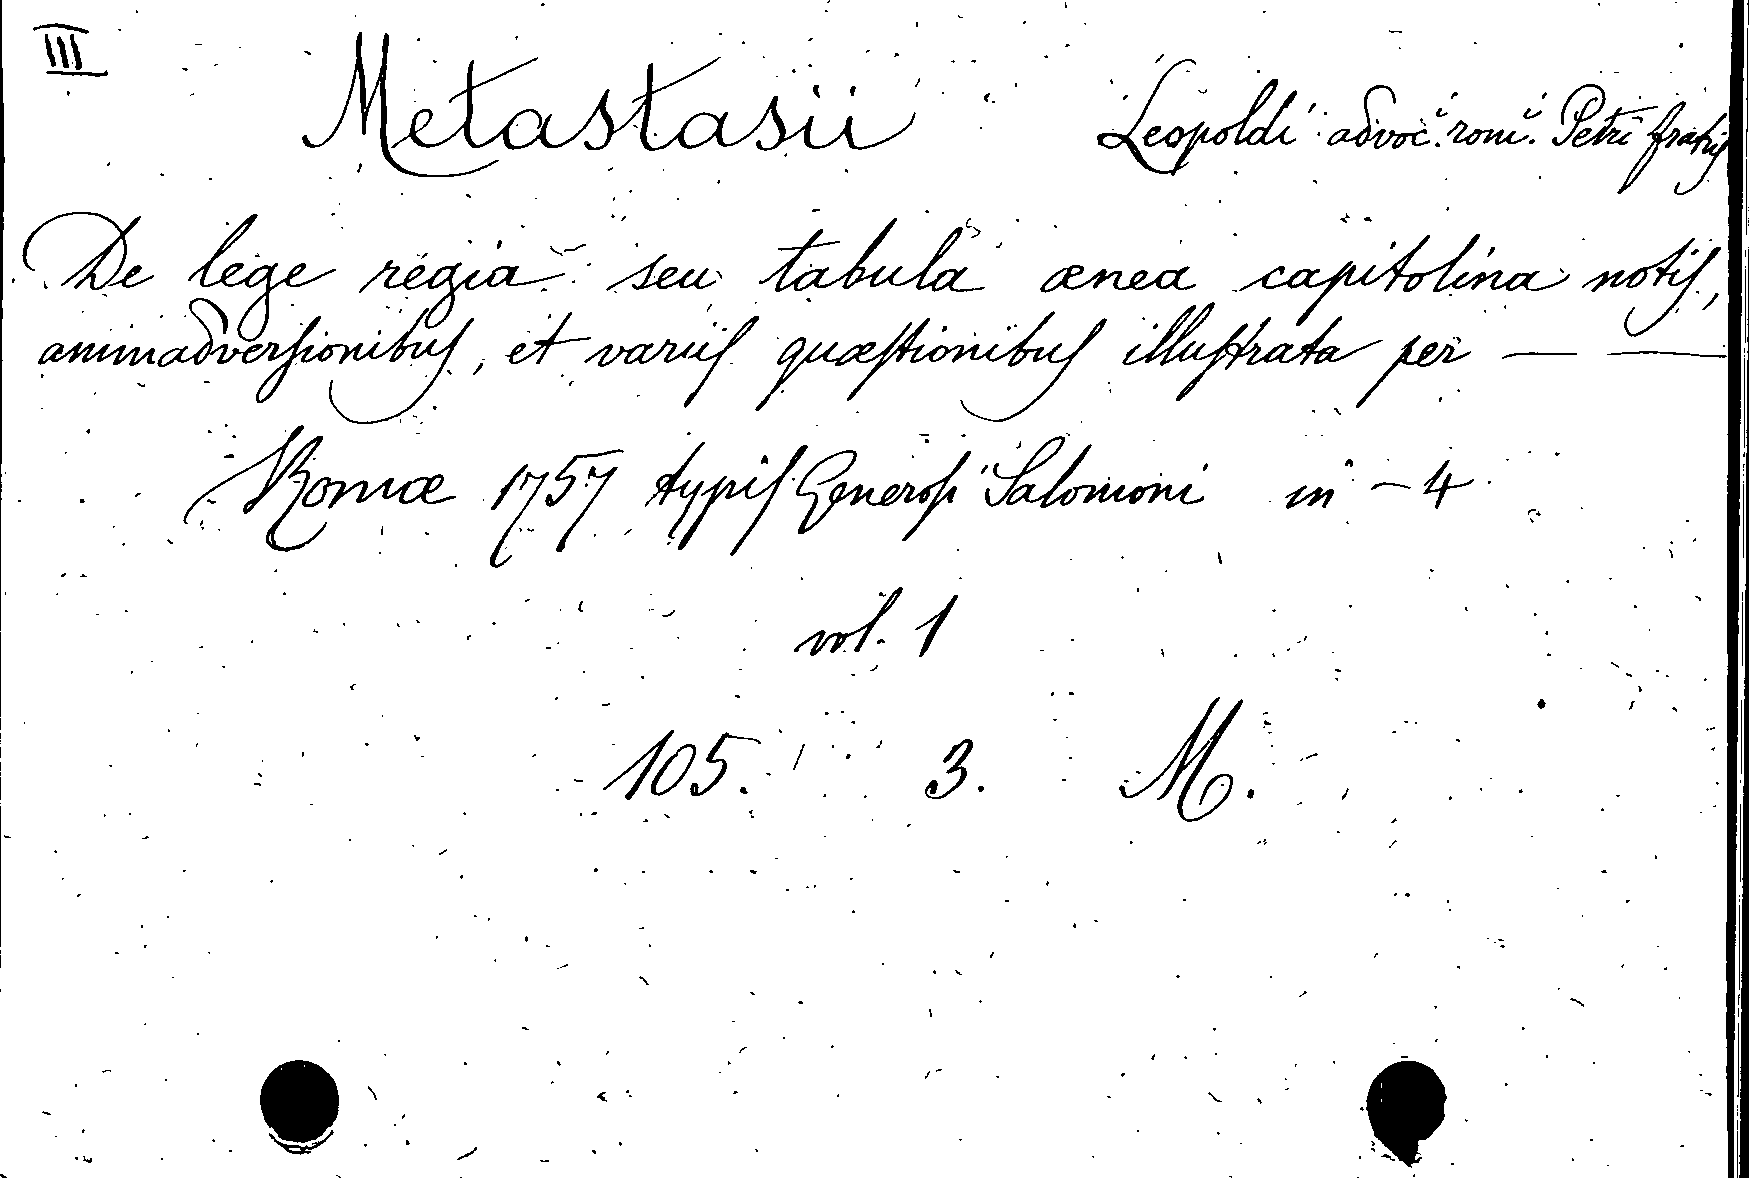 III
Metastasii Leopoldi advoc. rom. Petri fratris
De lege regia seu tabula ænea capitolina notis,
animadversionibus, et variis quæstionibus illustrata per — —
Romæ 1757 typis Generosi Salomoni in - 4
vol. 1
105. 3. M.